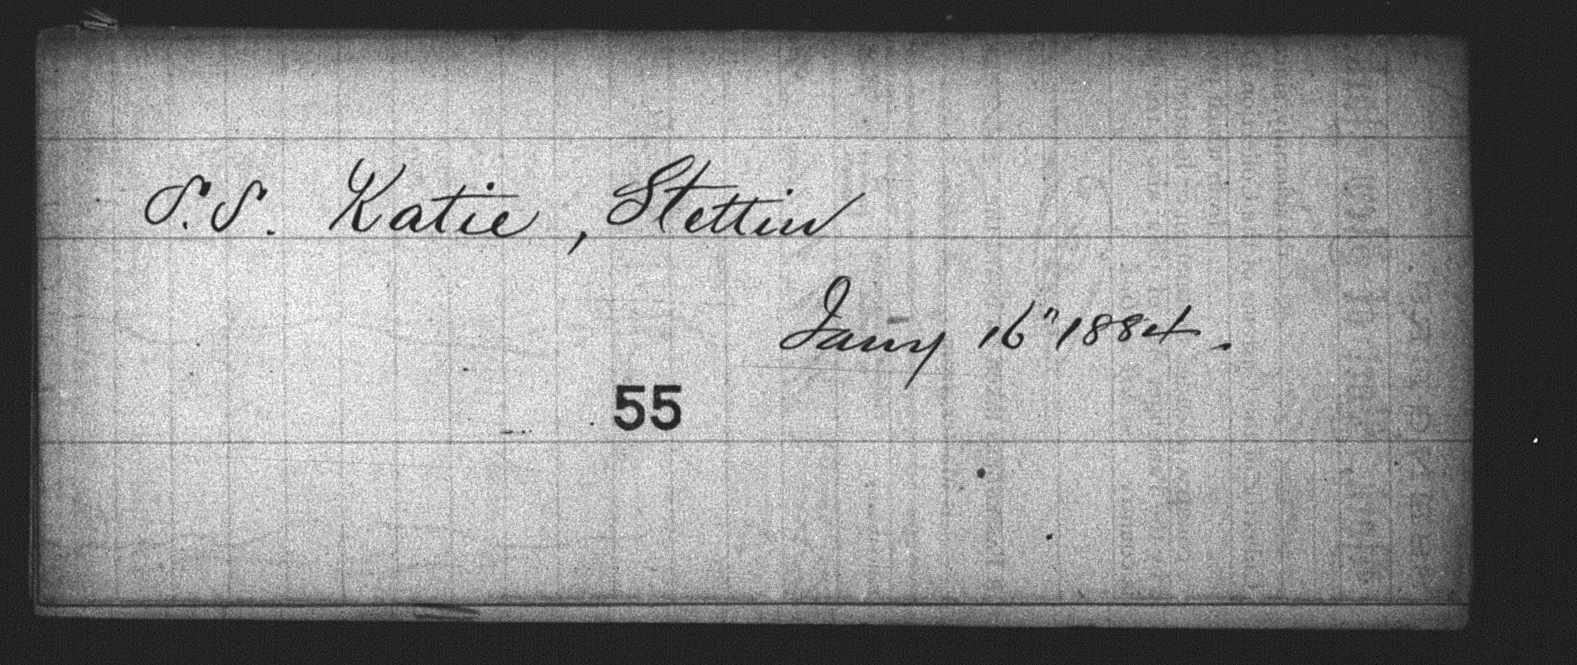 S.S. Katie, Stettin
Jany 16" 1884.
55